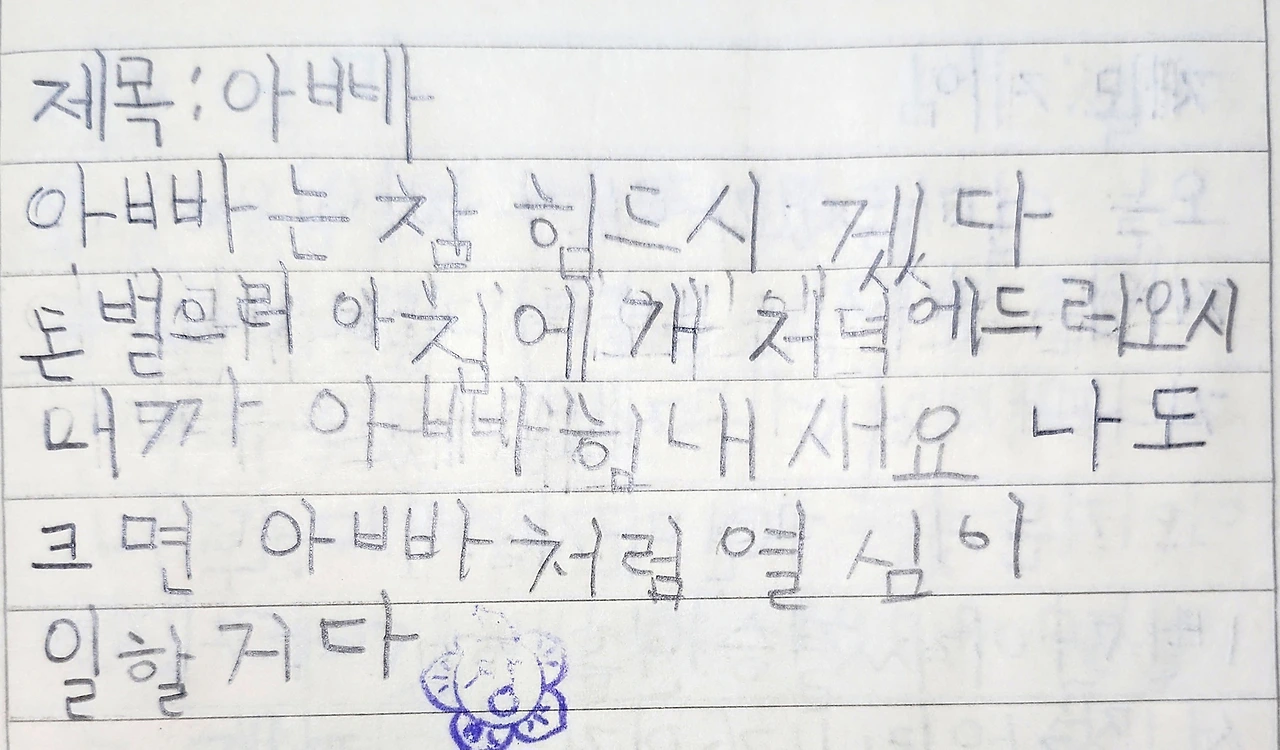 제목: 아빠
아빠는 참 힘드시 겠다
돈 벌으러 아침에 개 처녁에드러오시
니까 아빠힘내 서요 나도
크면 아빠처럼 열심이
일할거다